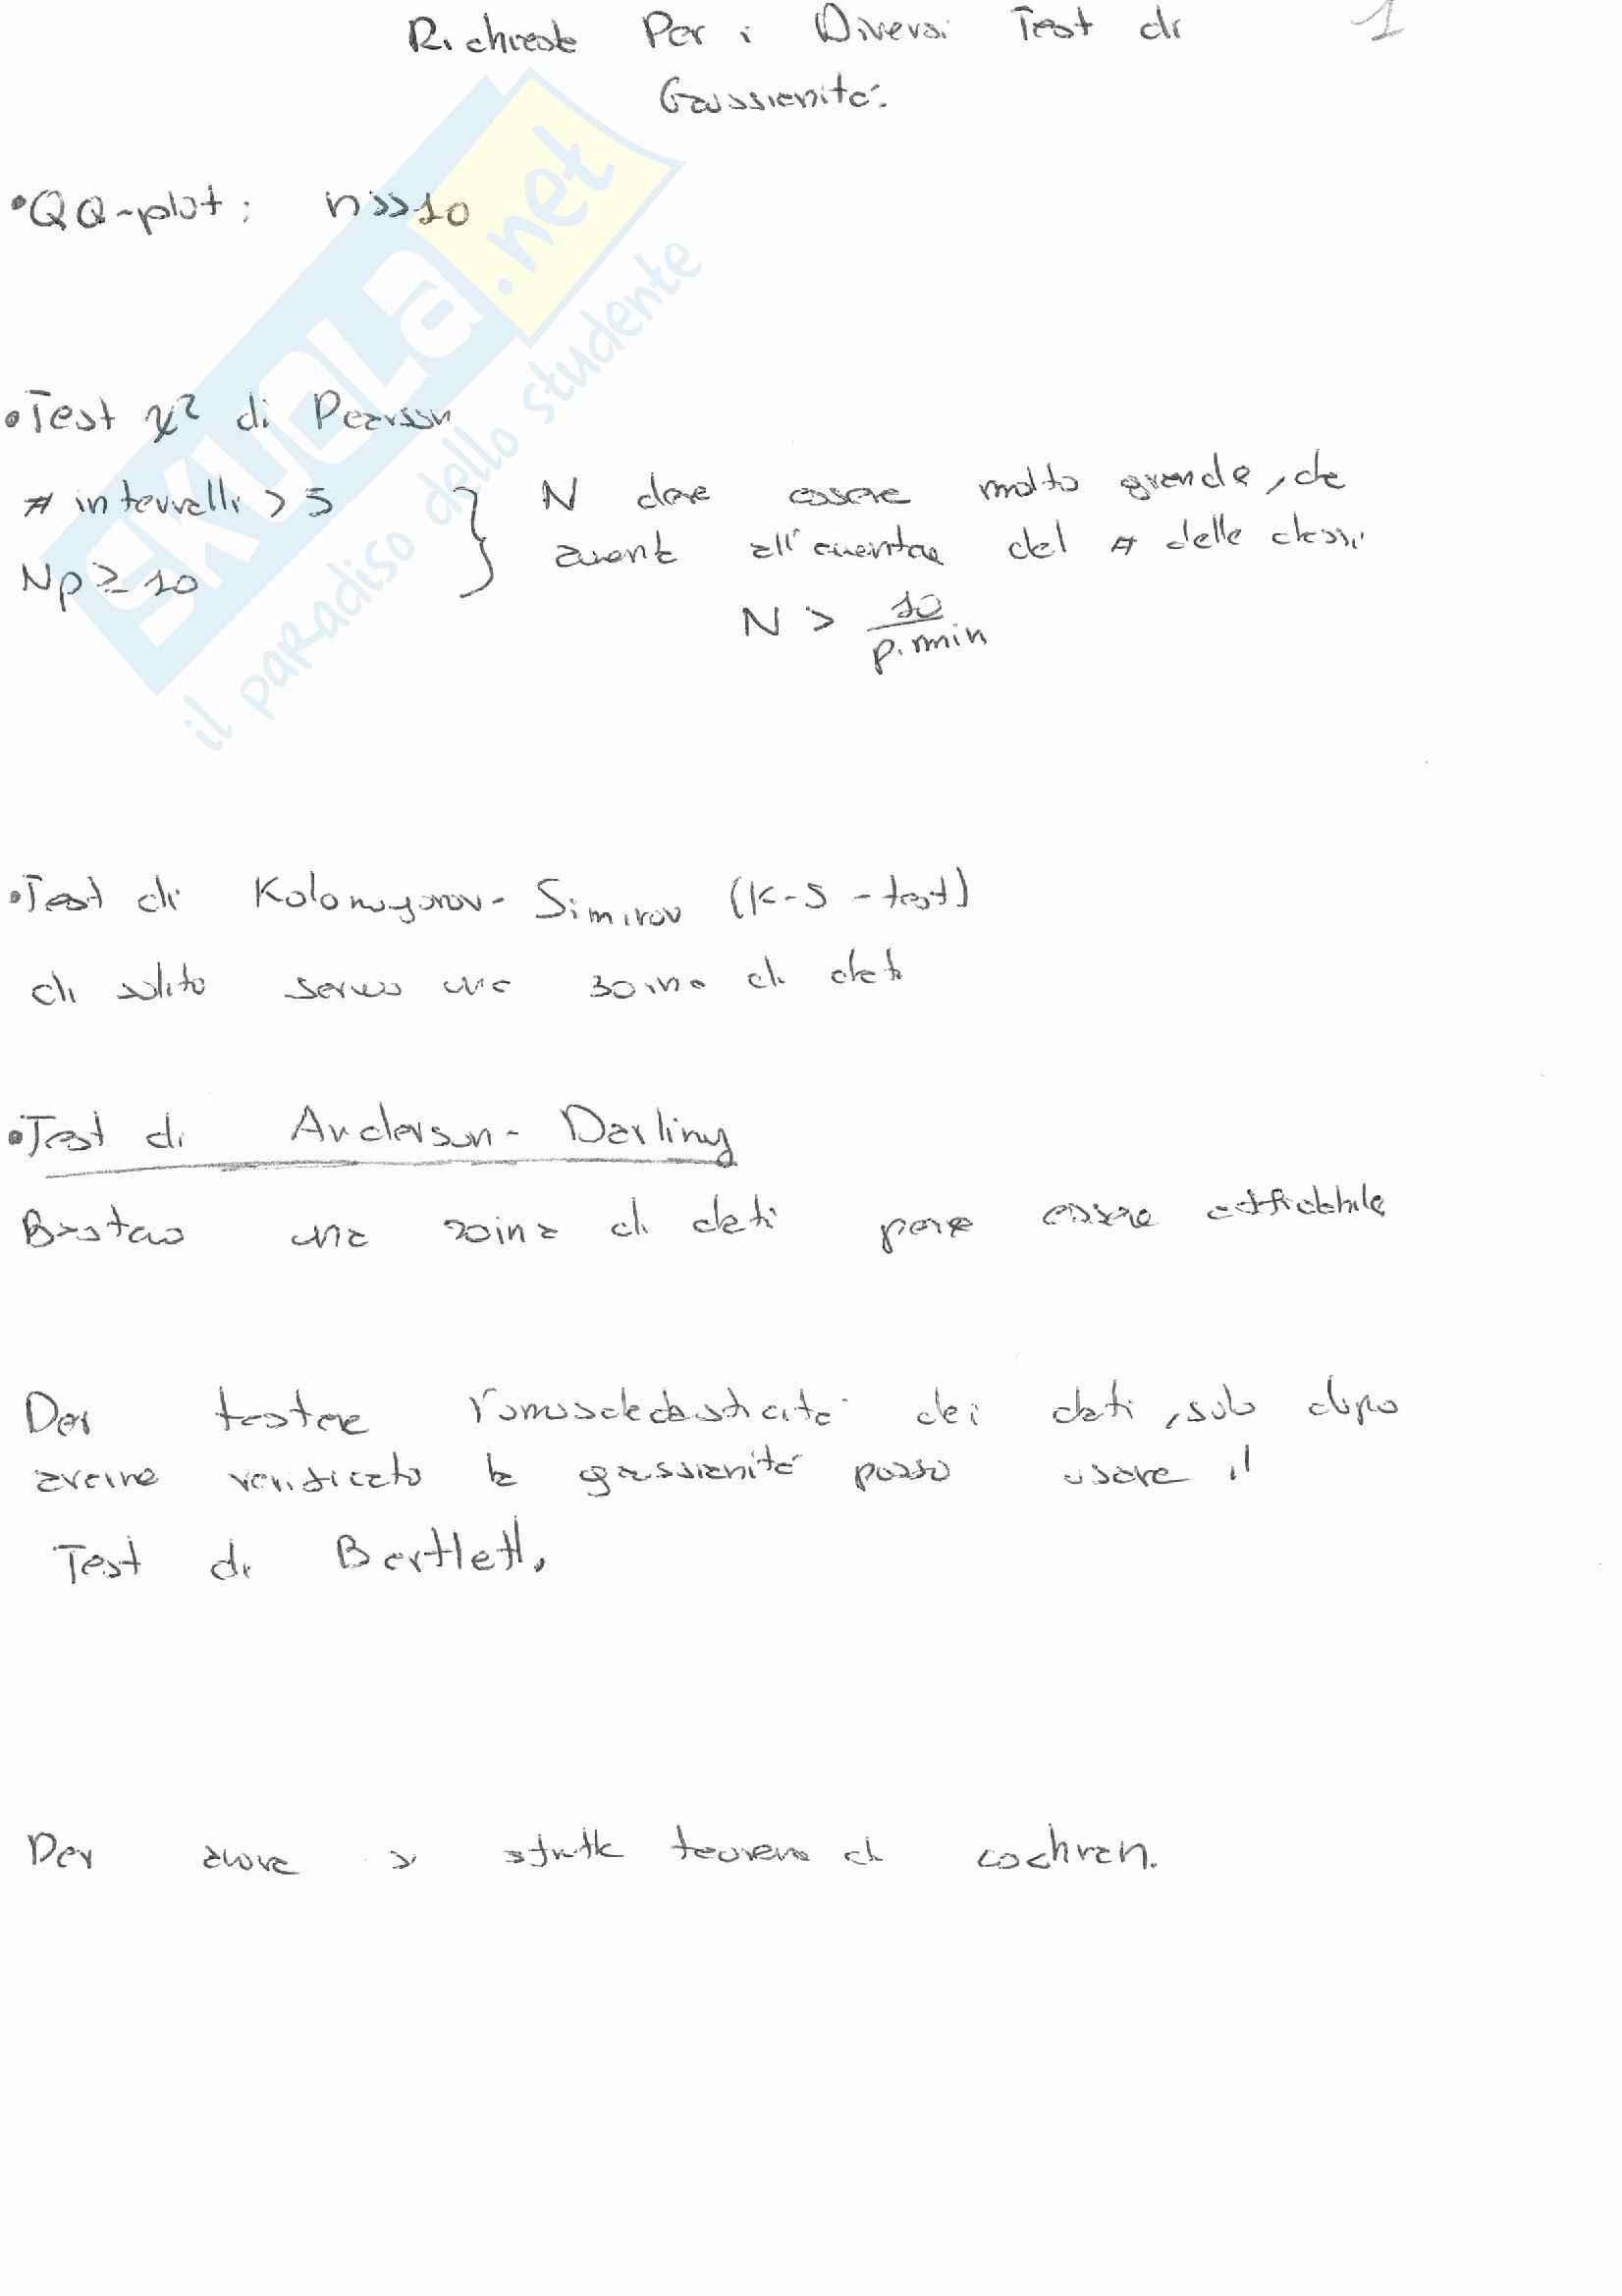 Richieste Per i Diversi Test di 1
Gaussianità:
•QQ-plot: n>>10
•Test χ² di Pearson
# intervalli > 5 } N deve essere molto grande,
Np ≥ 10 all'aumentare del # delle classi.
N > 10/pi min
•Test di Kolomogorov-Simirov (K-S-test)
di solito servono una 30ina di dati
•Test di Anderson-Darling
Bastano una 20ina di dati per essere affidabile
Per testare l'omoschedasticità dei dati, solo dopo
averne verificato la gaussianità posso usare il
Test di Bartlett.
Per anova si sfrutta teorema di cochran.
SKUOLa.net
il paradiso dello studente